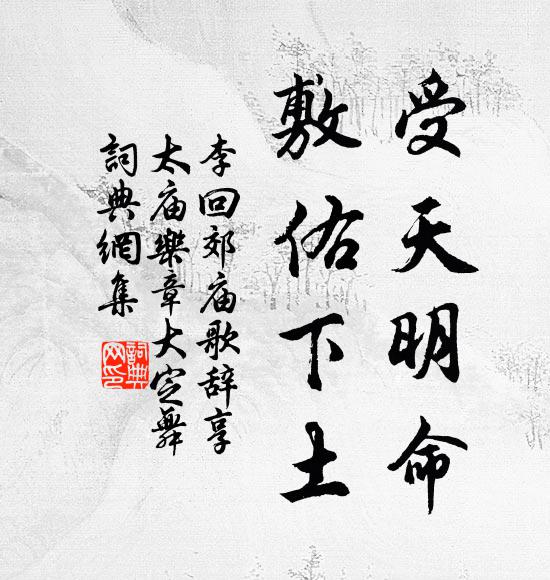 受天明命
敷佑下土
李回郊庙歌辞享
太庙樂章大定舞
詞典網集
詞典網印